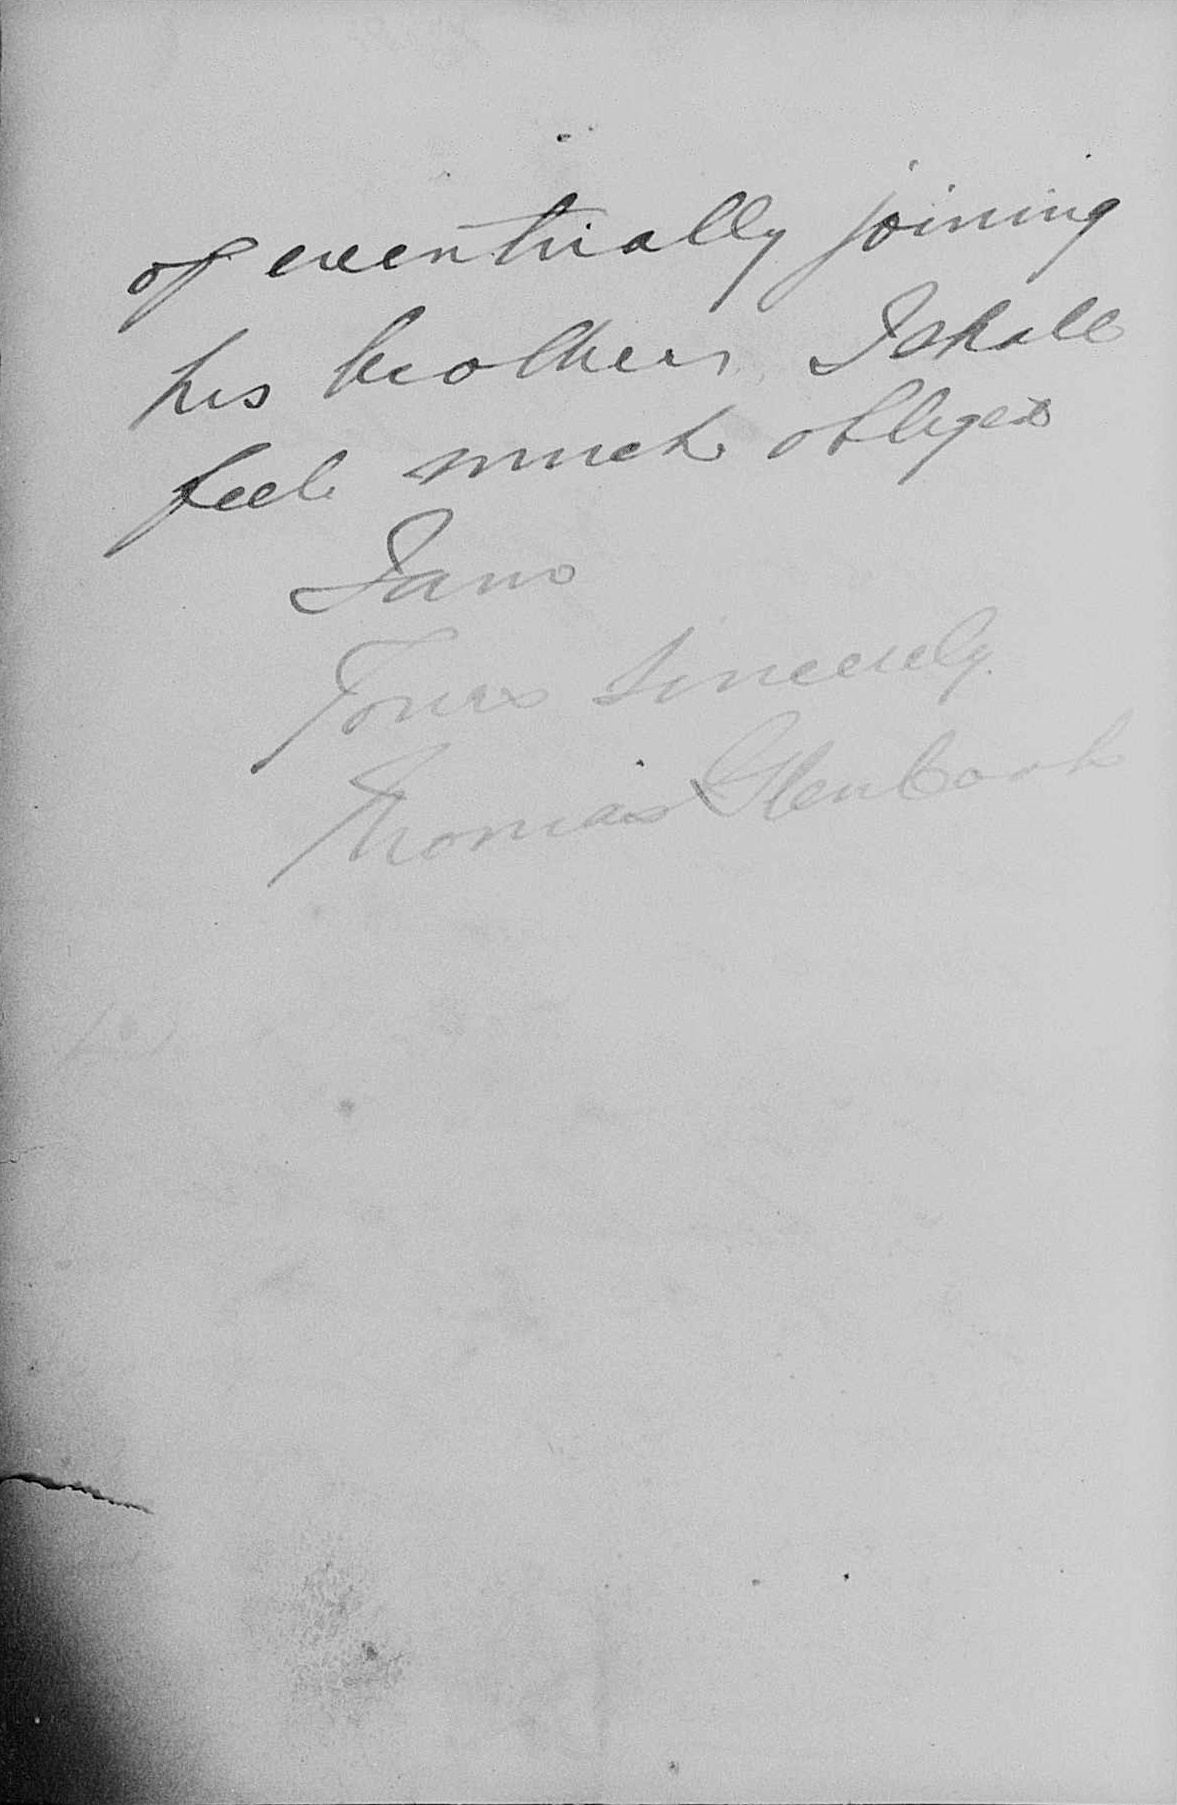 of eventually joining
his brothers I shall
feel much obliged
I am
Yours sincerely
Thomas Glen Cook